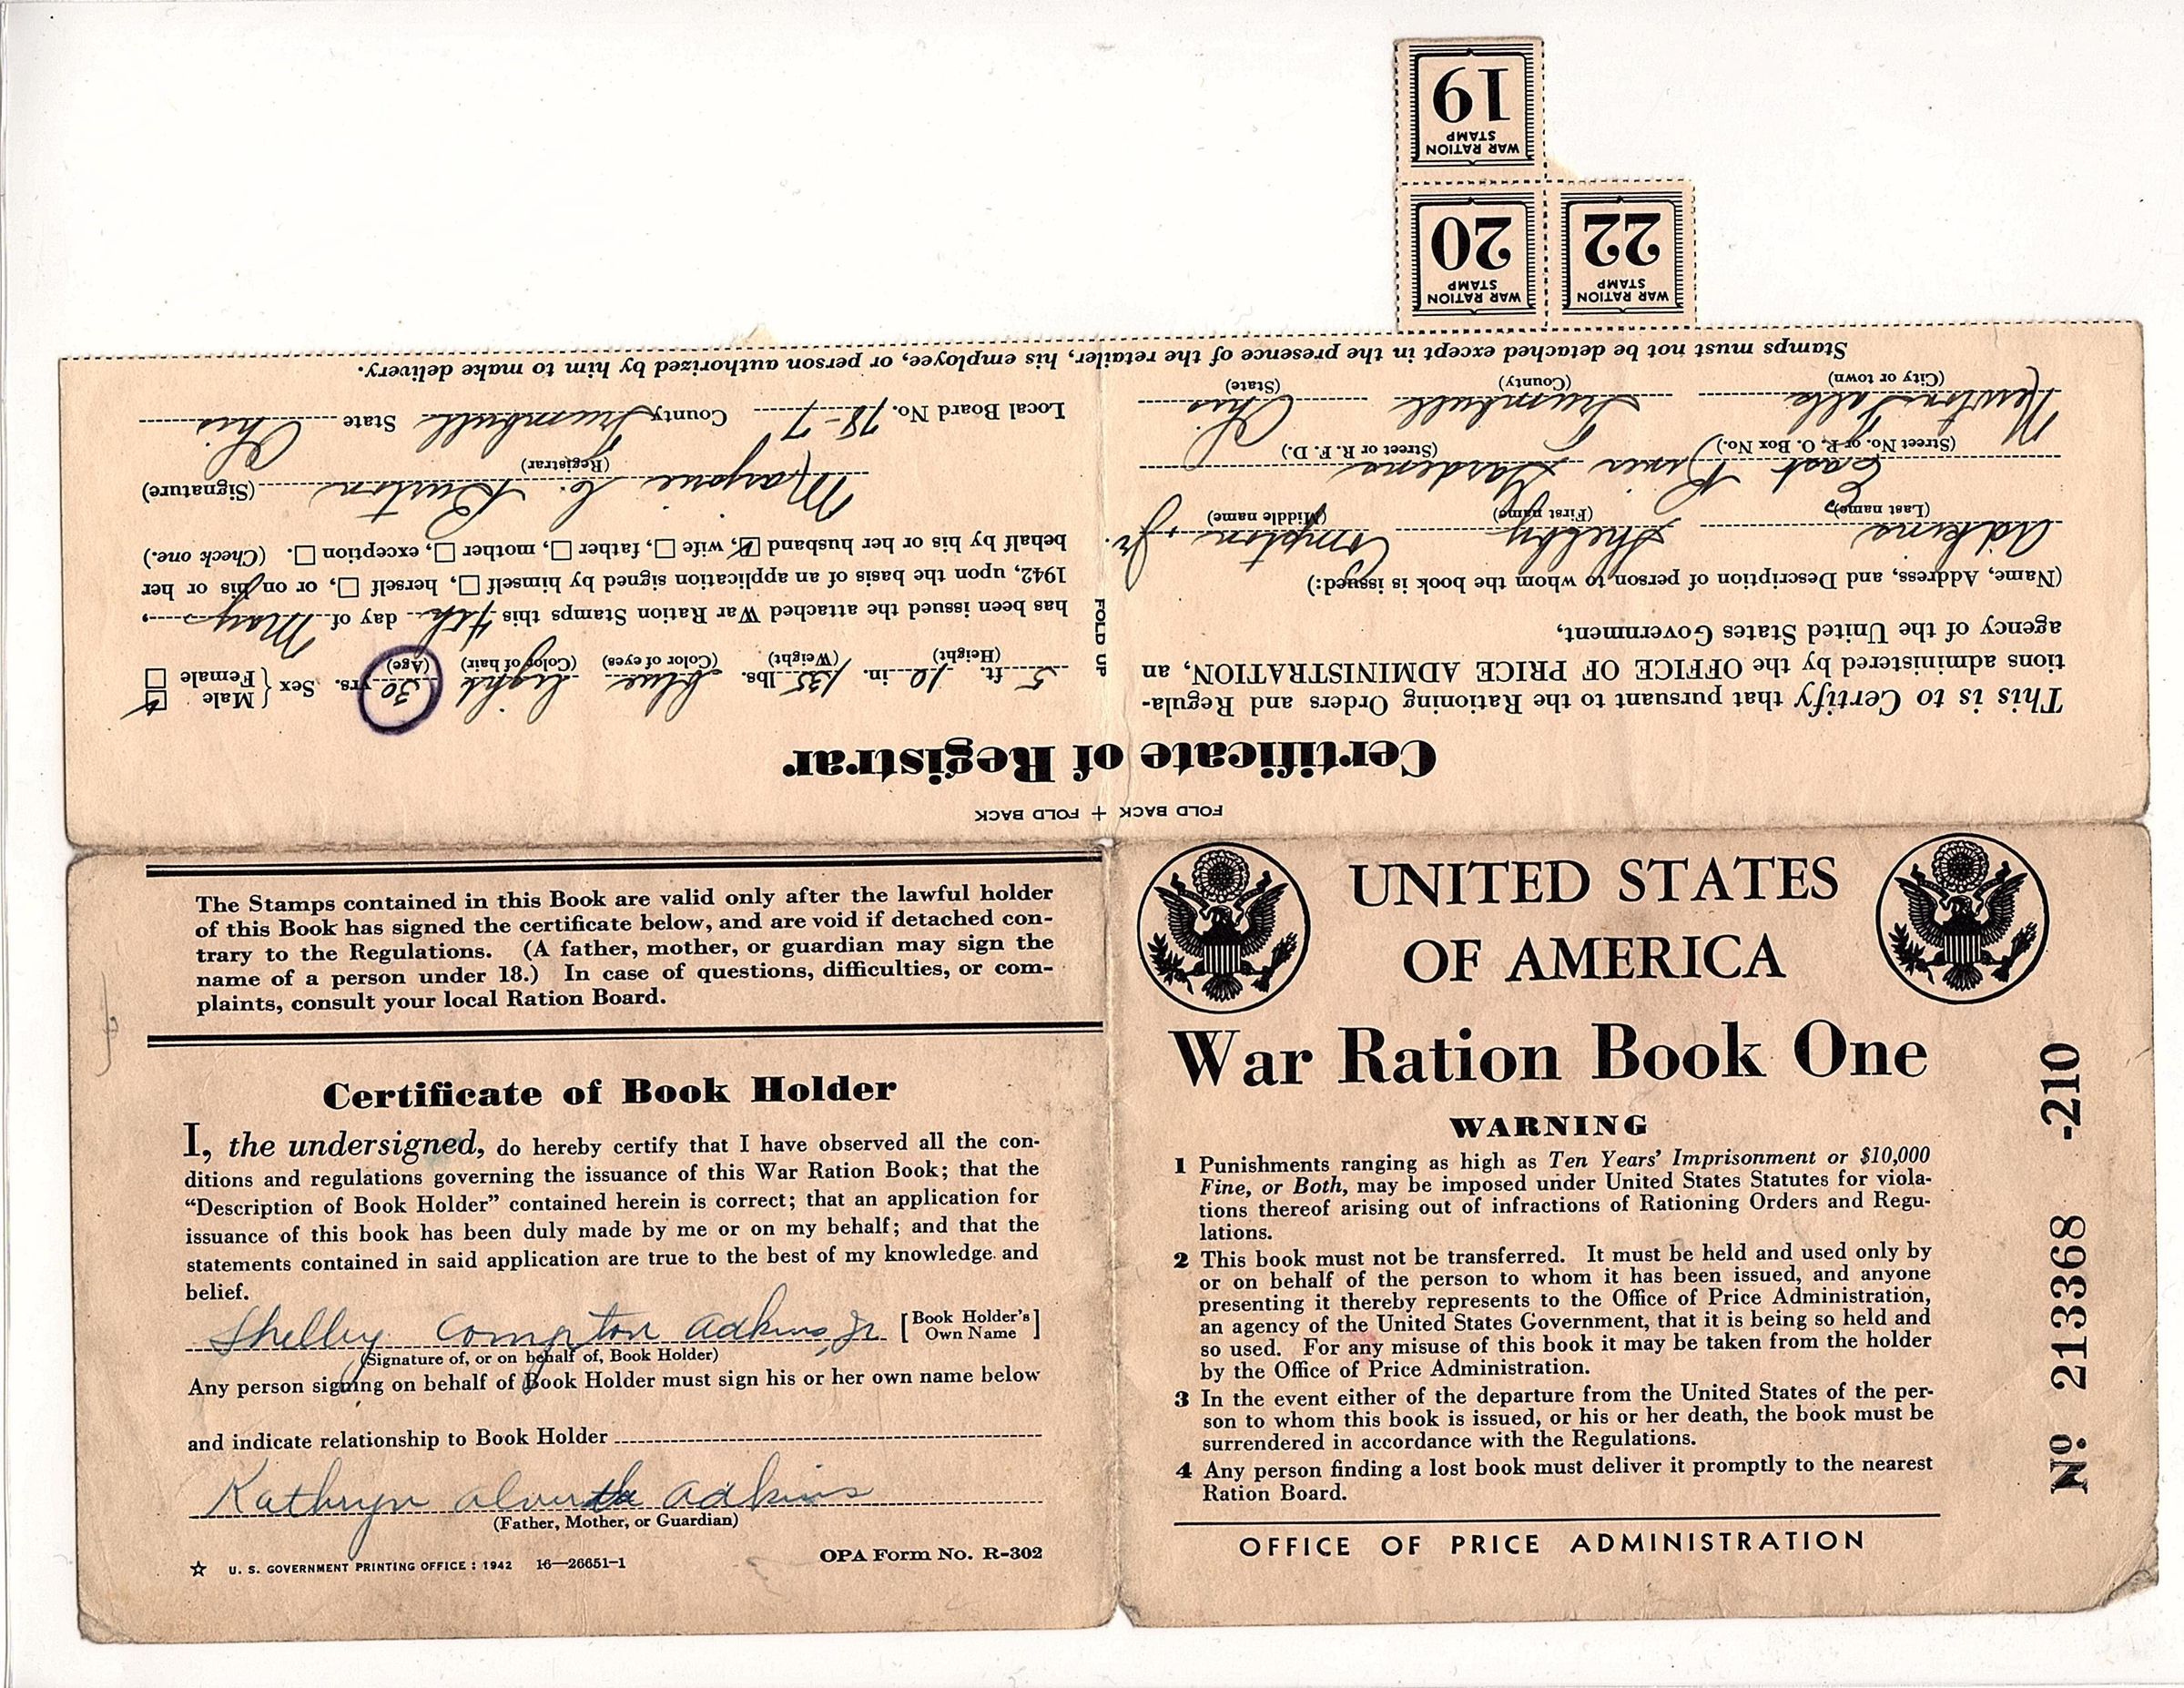 19
WAR RATION
STAMP
20
WAR RATION
STAMP
22
WAR RATION
STAMP
Certificate of Registrar
This is to Certify that pursuant to the Rationing Orders and Regula-
tions administered by the OFFICE OF PRICE ADMINISTRATION, an
agency of the United States Government,
(Name, Address, and Description of person to whom the book is issued:)
Adkins Shelby Compton, Jr.
(Last name) (First name) (Middle name)
East River Gardens
(Street No. or P. O. Box No.) (Street or R. F. D.)
Newton Falls Trumbull Ohio
(City or town) (County) (State)
FOLD UP
5 ft. 10 in. 135 lbs. blue light 30 yrs. Sex { Male ☑ Female ☐
(Height) (Weight) (Color of eyes) (Color of hair) (Age)
has been issued the attached War Ration Stamps this 4th day of May,
1942, upon the basis of an application signed by himself ☐, herself ☐, or on his or her
behalf by his or her husband ☑, wife ☐, father ☐, mother ☐, exception ☐. (Check one.)
Marjorie C. Burton (Signature)
(Registrar)
Local Board No. 78-7 County Trumbull State Ohio
Stamps must not be detached except in the presence of the retailer, his employee, or person authorized by him to make delivery.
FOLD BACK + FOLD BACK
The Stamps contained in this Book are valid only after the lawful holder
of this Book has signed the certificate below, and are void if detached con-
trary to the Regulations. (A father, mother, or guardian may sign the
name of a person under 18.) In case of questions, difficulties, or com-
plaints, consult your local Ration Board.
Certificate of Book Holder
I, the undersigned, do hereby certify that I have observed all the con-
ditions and regulations governing the issuance of this War Ration Book; that the
“Description of Book Holder” contained herein is correct; that an application for
issuance of this book has been duly made by me or on my behalf; and that the
statements contained in said application are true to the best of my knowledge and
belief.
Shelby Compton Adkins, Jr [Book Holder's Own Name]
(Signature of, or on behalf of, Book Holder)
Any person signing on behalf of Book Holder must sign his or her own name below
and indicate relationship to Book Holder
Kathryn Adkins
(Father, Mother, or Guardian)
☆ U. S. GOVERNMENT PRINTING OFFICE : 1942 16—26651-1
OPA Form No. R-302
UNITED STATES
OF AMERICA
War Ration Book One
WARNING
1 Punishments ranging as high as Ten Years' Imprisonment or $10,000
Fine, or Both, may be imposed under United States Statutes for viola-
tions thereof arising out of infractions of Rationing Orders and Regu-
lations.
2 This book must not be transferred. It must be held and used only by
or on behalf of the person to whom it has been issued, and anyone
presenting it thereby represents to the Office of Price Administration,
an agency of the United States Government, that it is being so held and
so used. For any misuse of this book it may be taken from the holder
by the Office of Price Administration.
3 In the event either of the departure from the United States of the per-
son to whom this book is issued, or his or her death, the book must be
surrendered in accordance with the Regulations.
4 Any person finding a lost book must deliver it promptly to the nearest
Ration Board.
OFFICE OF PRICE ADMINISTRATION
No 213368 -210